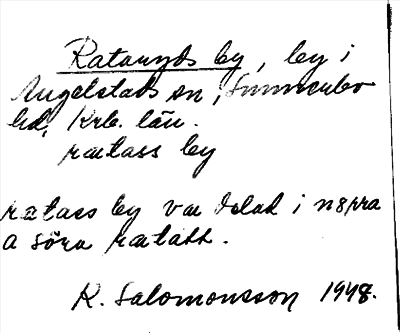 Rataryds by, by i
Angelstads sn, Sunnerbo
hd, Krb. län.
rætass by
rætass by var delad i nørra
a söra rætatt.
K. Salomonsson 1948.